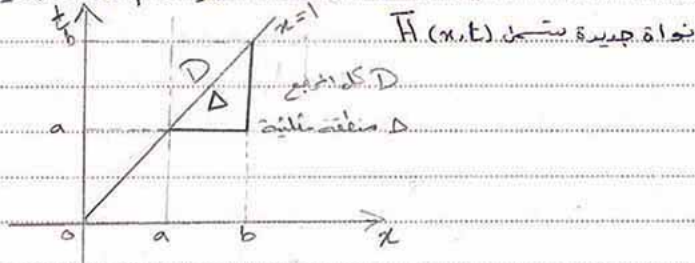 نواة جديدة تسمى H̅ (x,t)
t
b
x=1
D
D كل المربع
Δ
Δ منطقة مثلثية
a
o
a
b
x